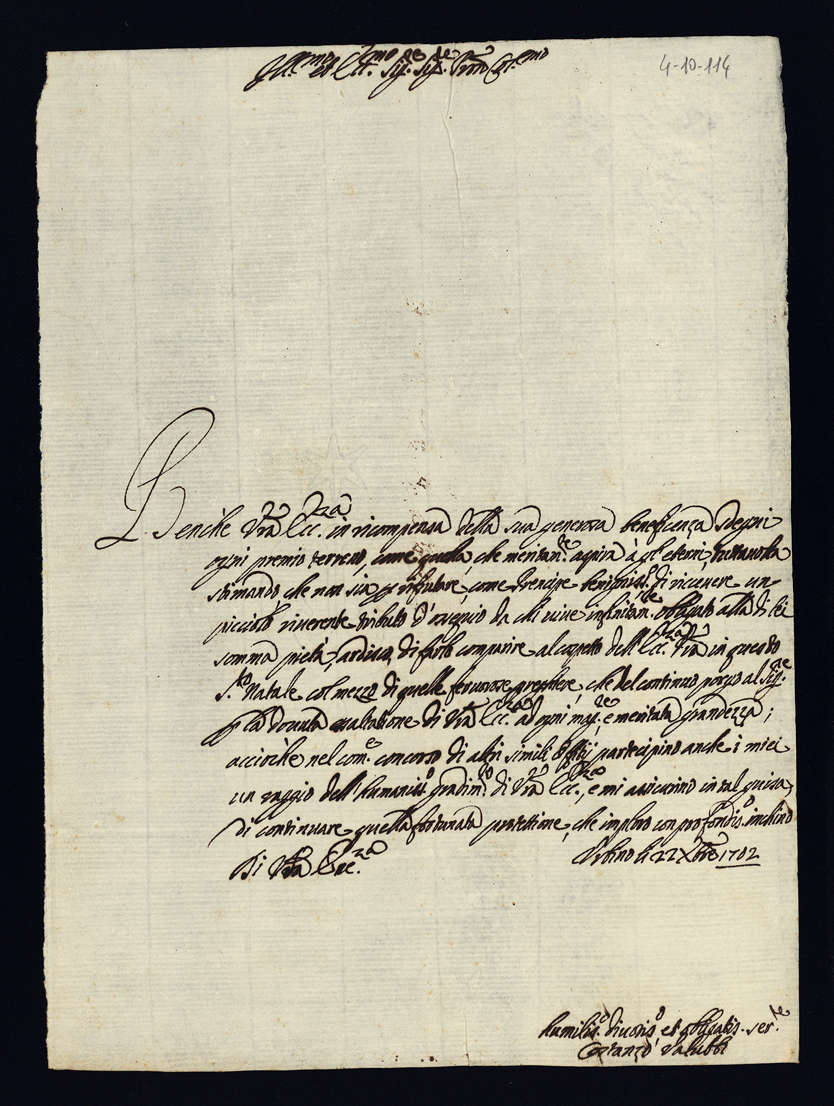 Ill.mo et Ecc.mo Sig.re Sig.re Pron Col.mo
4-10-114
Benche Vra Ecc.za in ricompensa della sua generosa beneficenza sdegni
ogni premio terreno, come quella, che meritam.te aspira à gl'eterni, tuttavolta
stimando che non sia p rifiutare come Prencipe benigniss.o di ricevere un
picciolo riverente tributo d'ossequio da chi vive infinitam.te obligato alla di lei
somma pietà, ardisco di farlo comparire al cospetto dell'Ecc.za Vra in questo
S.to Natale col mezzo di quelle fervorose preghiere, che del continuo porgo al Sig.re
p la dovuta esaltatione di Vra Ecc.za ad ogni mag.re e meritata grandezza;
accioche nel com.e concorso di altri simili offitij participino anche i miei
un raggio dell'humaniss.o gradim.to di Vra Ecc.za, e mi assicurino in tal guisa,
di continuare quella fortunata protettione, che imploro con profondis.o inchino
Di Vra Ecc.za
Urbino li 22 Xbre 1702
humilis.o divotis.o et obligatis. ser.re
Costanzo